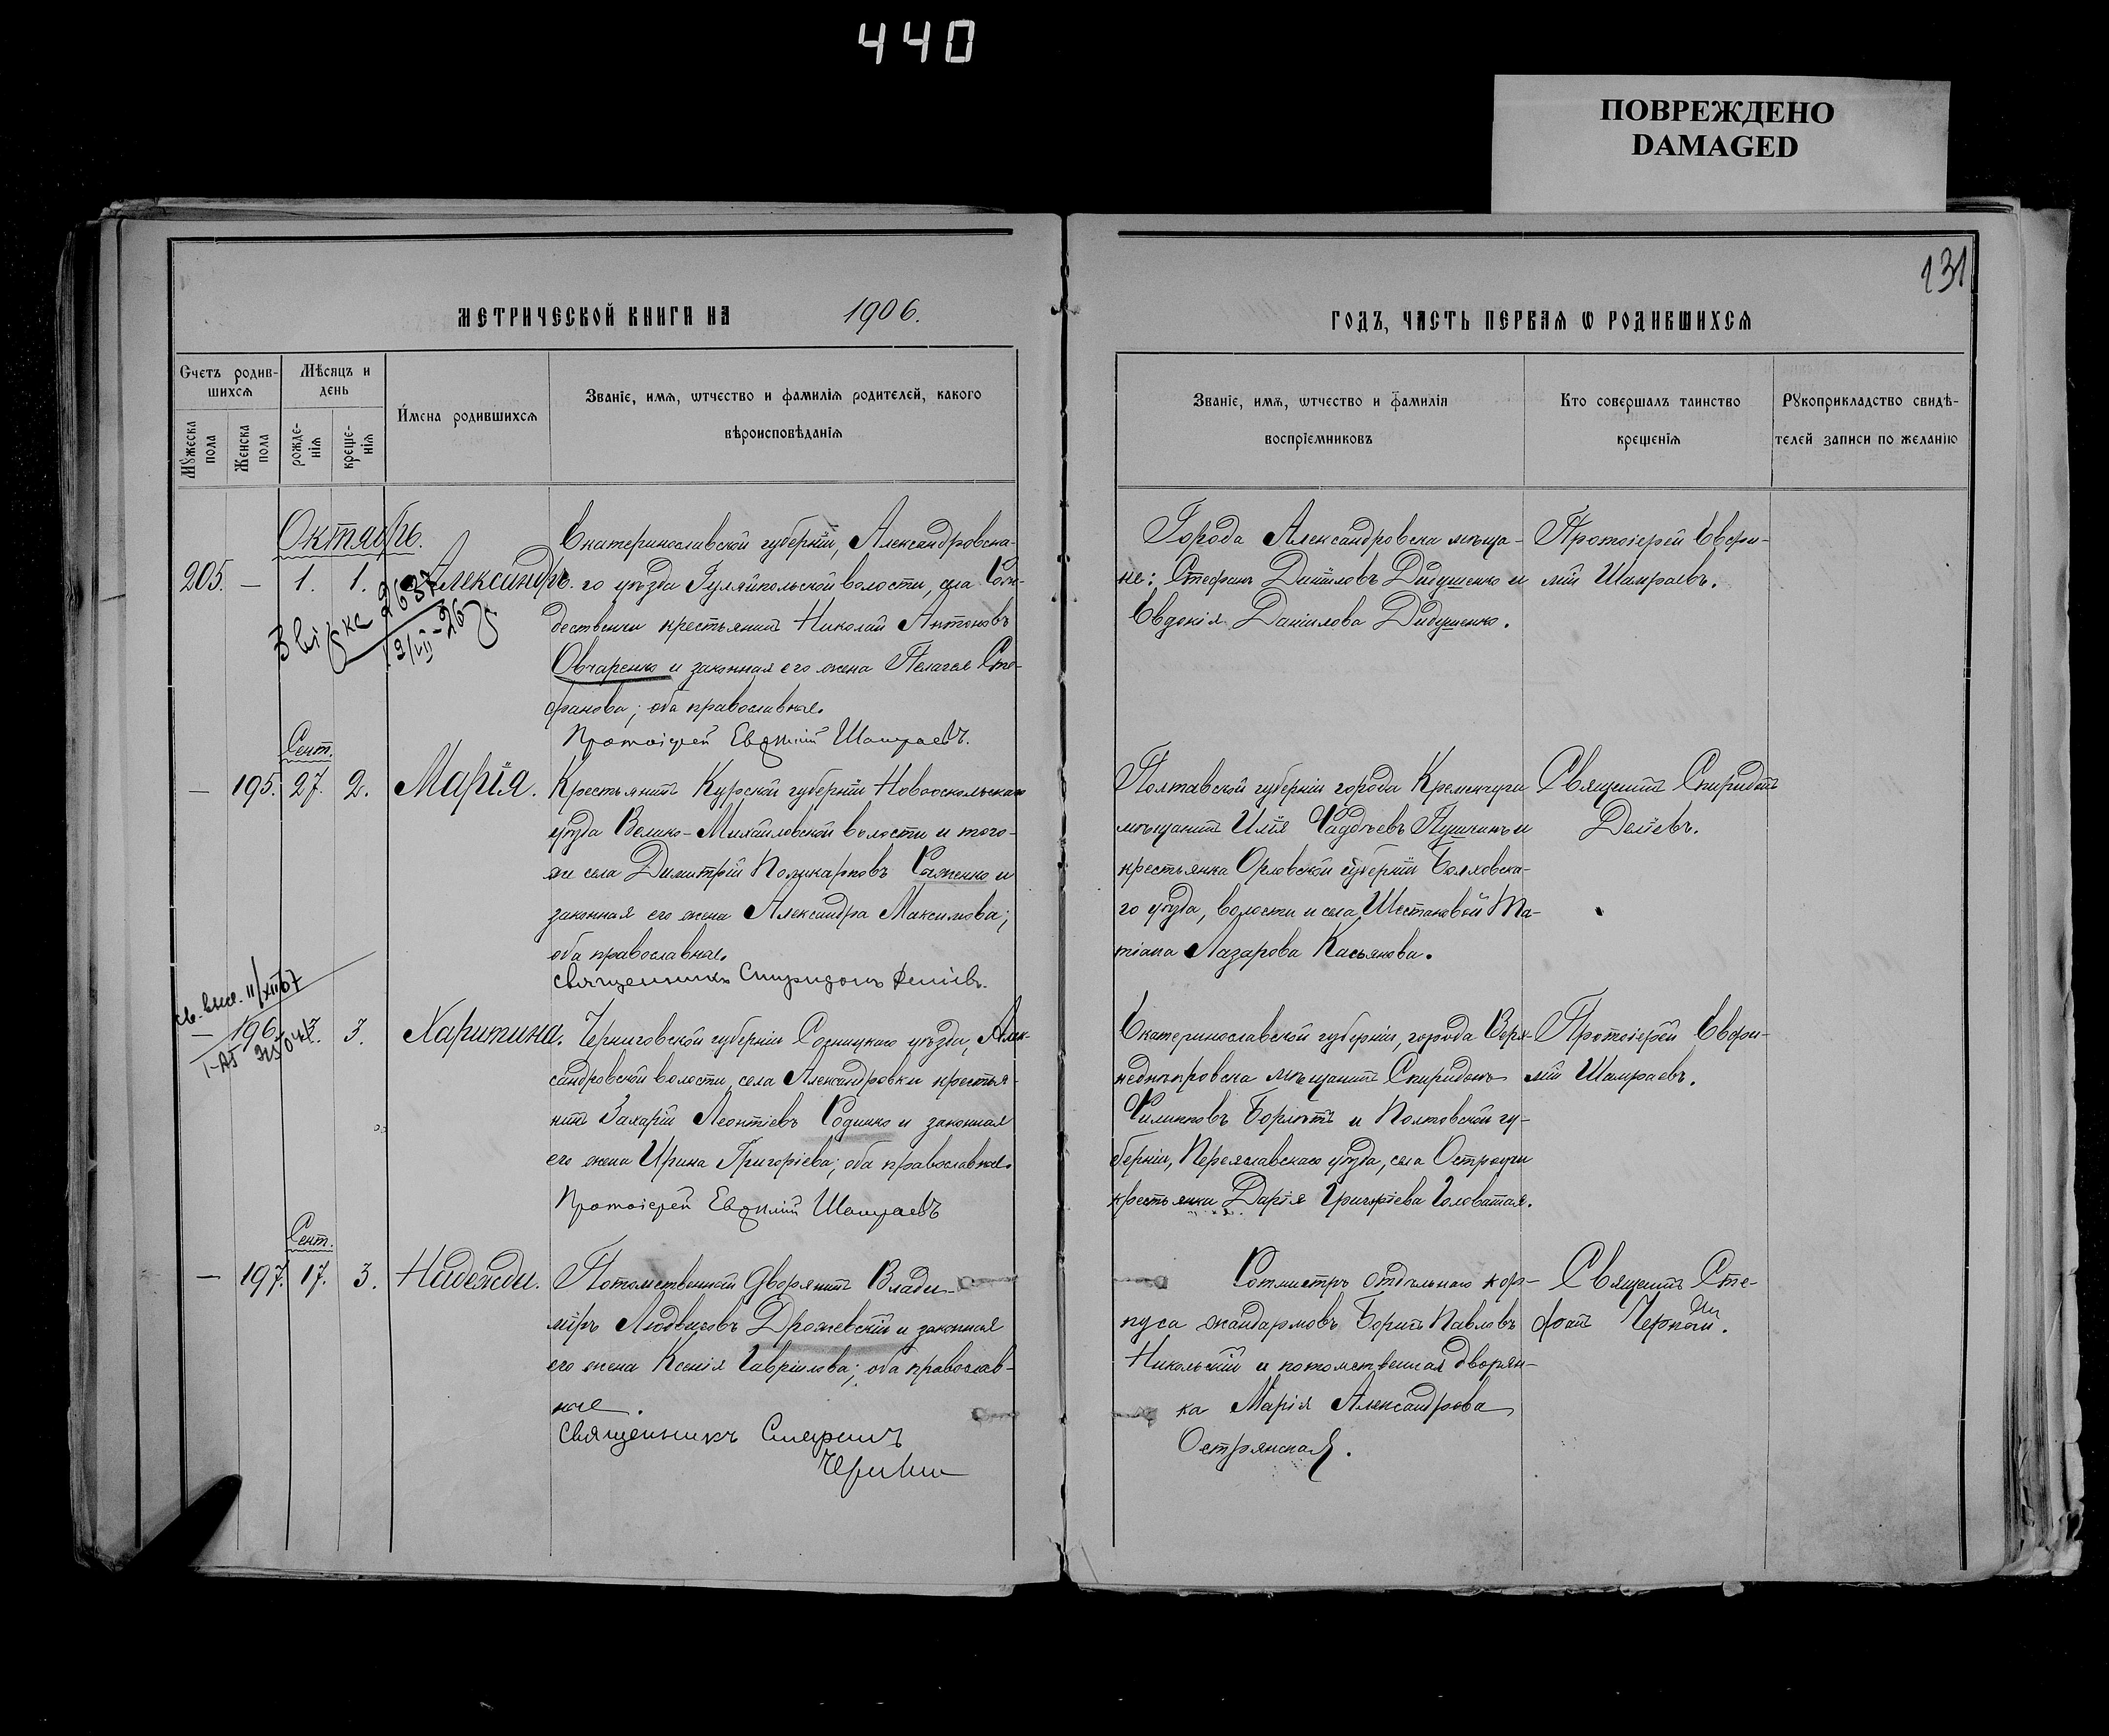 440
ПОВРЕЖДЕНО
DAMAGED
131
МЕТРИЧЕСКОЙ КНИГИ НА 1906.
ГОДЪ, ЧАСТЬ ПЕРВАЯ Ѡ РОДИВШИХСЯ
Счетъ родив-
шихся
Мѣсяцъ и
день
Мꙋжеска
пола
Женска
пола
рожде-
нія
креще-
нія
Имена родившихся
Званіе, имя, ѡтчество и фамилія родителей, какого
вѣроисповѣданія
Званіе, имя, ѡтчество и фамилія
воспріемниковъ
Кто совершалъ таинство
крещенія
Рꙋкоприкладство свидѣ-
телей записи по желанію
Октябрь.
205. — 1. 1. Александръ.
Екатеринославской губерніи, Александровска-
го уѣзда Гуляйпольской волости, села Рож-
дественки крестьянинъ Николай Антоновъ
Овчаренко и законная его жена Пелагея Сте-
фанова; оба православные.
Протоіерей Евѳимій Шамраевъ.
Города Александровска мѣща-
не: Стефанъ Даніиловъ Дидушенко и
Евдокія Даніилова Дидушенко.
Протоіерей Евфи-
мій Шамраевъ.
2637
Сент.
— 195. 27. 2. Марія.
Крестьянинъ Курской губерніи Новооскольскаго
уѣзда Велико-Михайловской волости и того-
же села Димитрій Поликарповъ Саженко и
законная его жена Александра Максимова;
оба православные.
Священникъ Спиридонъ Деліевъ.
Полтавской губерніи города Кременчуга
мѣщанинъ Илія Фаддѣевъ Пушкинъ и
крестьянка Орловской губерніи Болховска-
го уѣзда, волости и села Шестаковой Та-
тіана Лазарова Касьянова.
Священникъ Спиридонъ
Деліевъ.
св. выс. 11/XII 67
— 196. 3. Харитина.
Черниговской губерніи Сосницкаго уѣзда, Алек-
сандровской волости, села Александровки крестья-
нинъ Захарій Леонтіевъ Родинко и законная
его жена Ирина Григоріева; оба православные.
Протоіерей Евѳимій Шамраевъ
Екатеринославской губерніи, города Верх-
неднѣпровска мѣщанинъ Спиридонъ
Филипповъ и Полтовской гу-
берніи, Переяславскаго уѣзда, села
крестьянка Дарія Григоріева Головатая.
Протоіерей Евфи-
мій Шамраевъ.
Сент.
— 197. 17. 3. Надежда.
Потомственный дворянинъ Влади-
міръ Людвиговъ Држевскій и законная
его жена Ксенія Гавріилова; оба православ-
ные.
Священникъ Стефанъ
Черный
Ротмистръ отдѣльнаго кор-
пуса жандармовъ Борисъ Павловъ
Никольскій и потомственная дворян-
ка Марія Александрова
Острянская.
Священникъ Сте-
фанъ Черный.